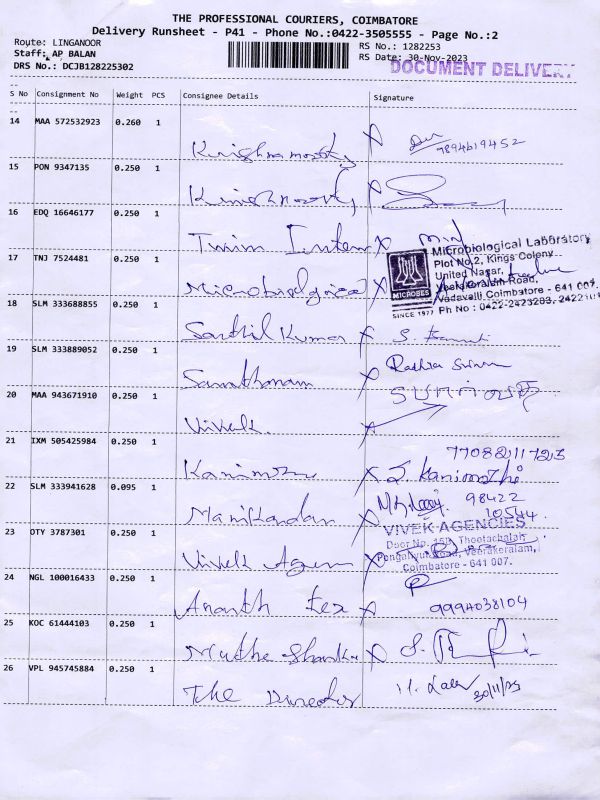 THE PROFESSIONAL COURIERS, COIMBATORE
Delivery Runsheet - P41 - Phone No.:0422-3505555 - Page No.:2
Route: LINGANOOR
RS No.: 1282253
Staff: AP BALAN
RS Date: 30-Nov-2023
DRS No.: DCJB128225302
DOCUMENT DELIVERY
S No Consignment No Weight PCS Consignee Details Signature
14 MAA 572532923 0.260 1
Krishnamoorthy X 9894619452
15 PON 9347135 0.250 1
X
16 EDQ 16646177 0.250 1
Twim Intern X
17 TNJ 7524481 0.250 1
Microbiological X
MICROBES
SINCE 1977
Microbiological Laboratory
Plot No.2, Kings Colony
United Nagar,
Veerakeralam Road,
Vadavalli, Coimbatore - 641 007.
Ph No : 0422-2423203,
18 SLM 333688855 0.250 1
Senthil Kumar X S.
19 SLM 333889052 0.250 1
Santhanam X Radha
20 MAA 943671910 0.250 1
Vivek X
21 IXM 505425984 0.250 1
Kanimozhi X S. Kanimozhi
22 SLM 333941628 0.095 1
Manikandan X 98422
10544
23 OTY 3787301 0.250 1
VIVEK AGENCIES
Door No. 15B, Thootachalah
Veerakeralam,
Coimbatore - 641 007.
Vivek Agen X
24 NGL 100016433 0.250 1
Ananth Tex X 9994038104
25 KOC 61444103 0.250 1
Muthu Shanka X
26 VPL 945745884 0.250 1
The Director 30/11/23